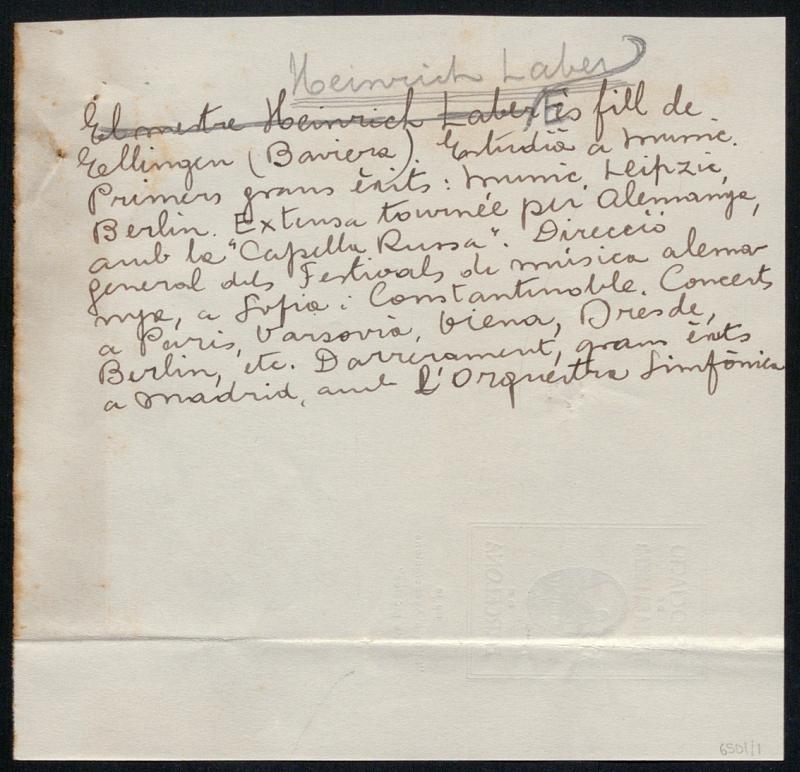 Heinrich Laber
El mestre Heinrich Laber És fill de
Ellingen (Baviera). Estudià a Munic.
Primers grans èxits: Munic, Leipzic,
Berlin. Extensa tournée per Alemanya,
amb la "Capella Russa". Direcció
general dels Festivals de música alema-
nya, a Sofia i Constantinoble. Concerts
a Paris, Varsovia, Viena, Dresde,
Berlin, etc. Darrerament, grans èxits
a Madrid, amb l'Orquestra Simfònica
6501/1